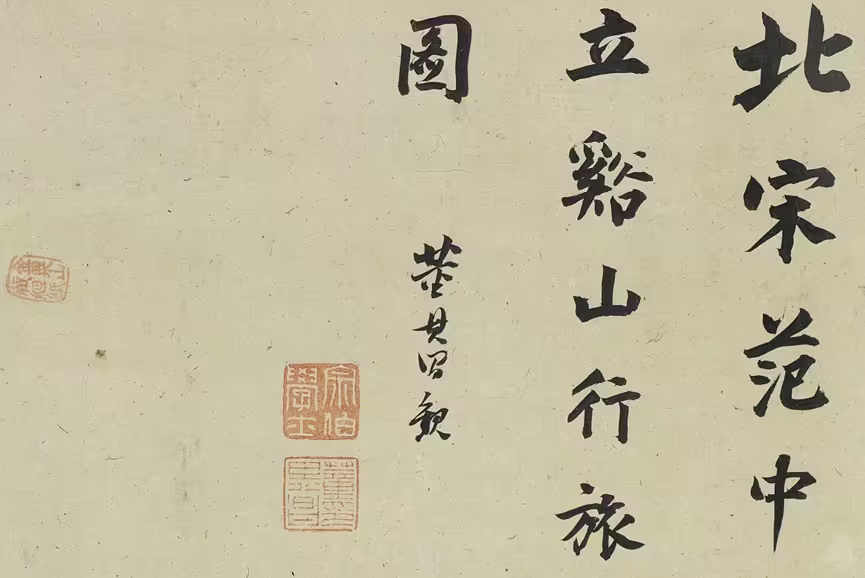 北宋范中
立谿山行旅
圖
董其昌觀
宗伯學士
董其昌印